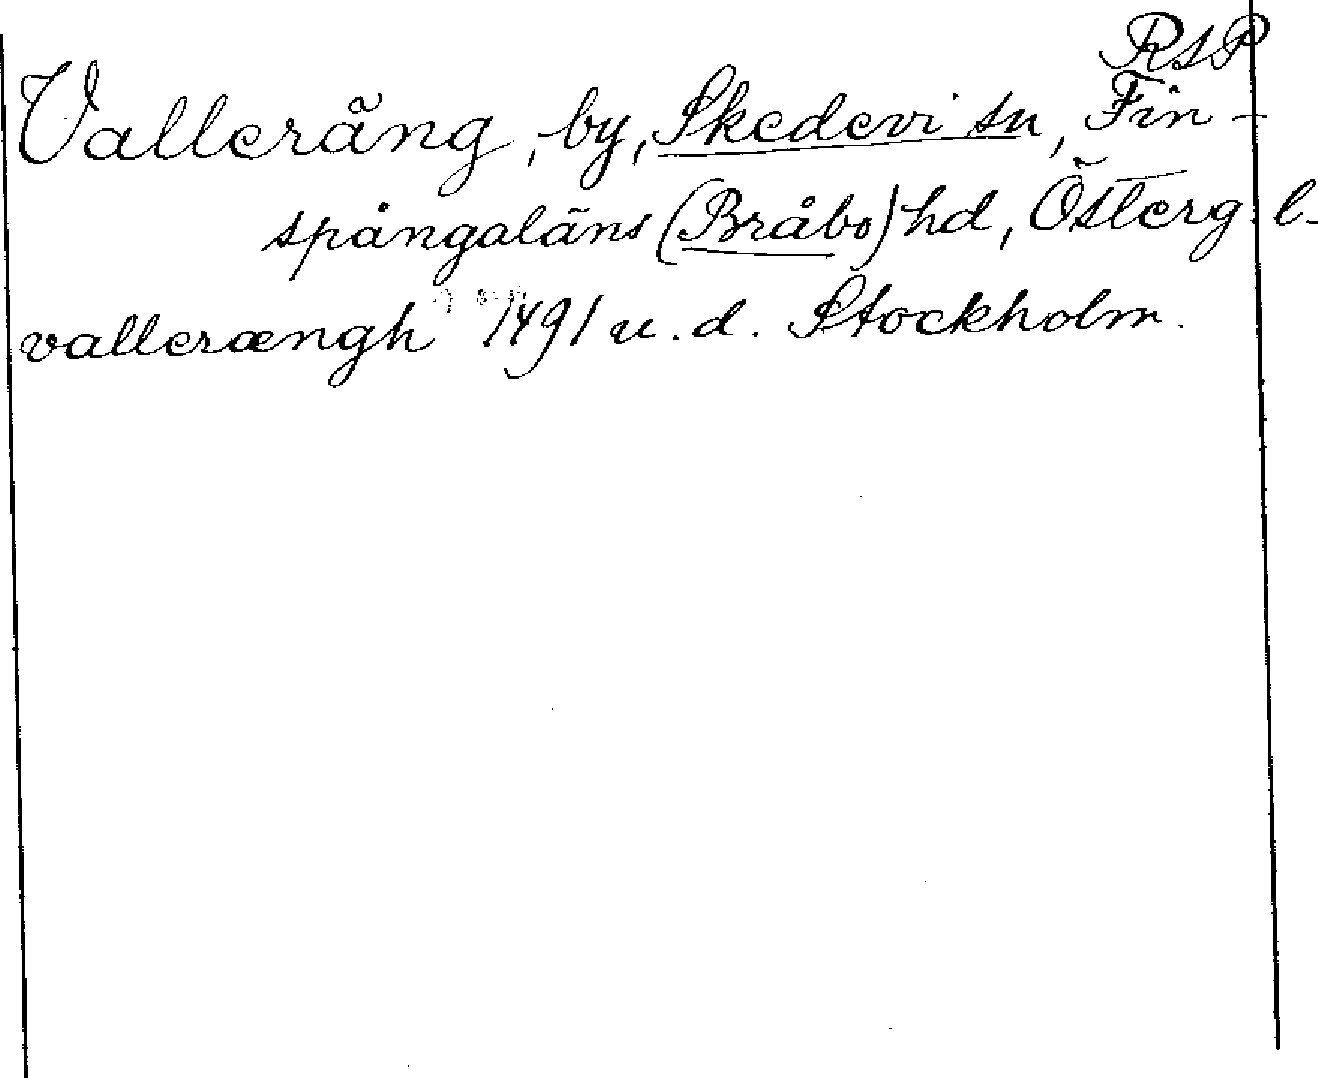 RAP
Valleräng, by, Skedevi sn, Fin-
spångaläns (Bråbo) hd, Österg. l.
vallerængh 1491 u. d. Stockholm.